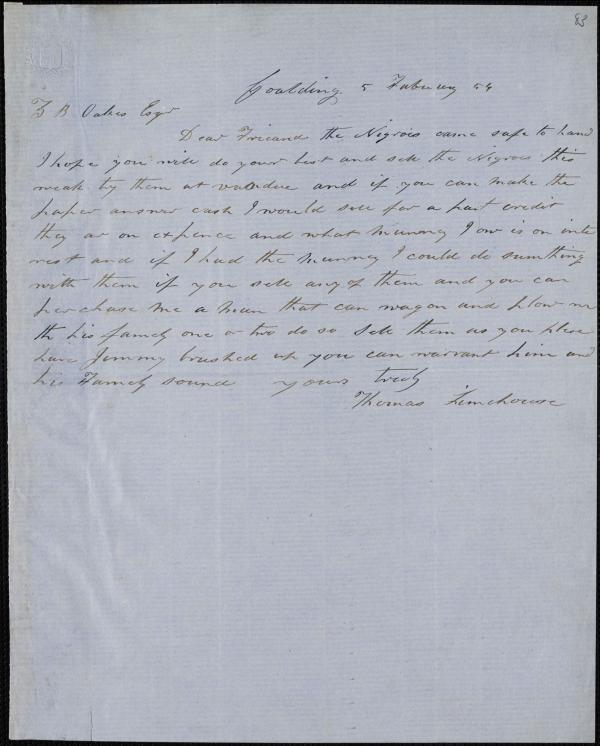 83
Goulding 5 Fabuery 54
Z B Oakes Esqr
Dear Friend the Nigrois came safe to hand
I hope you will do your best and sell the Nigrois this
weak by them at vandue and if you can make the
paper answer cash I would sell for a part credit
they ar on expence and what munny I ow is on inte
rest and if I had the munny I could do sumthing
with them if you sell any of them and you can
purchase me a man that can wagon and plow wi
th his famely one or two do so Sell them as you please
have Jimmy brushed up you can warrant him and
his Famely sound yours truly
Thomas Limehouse